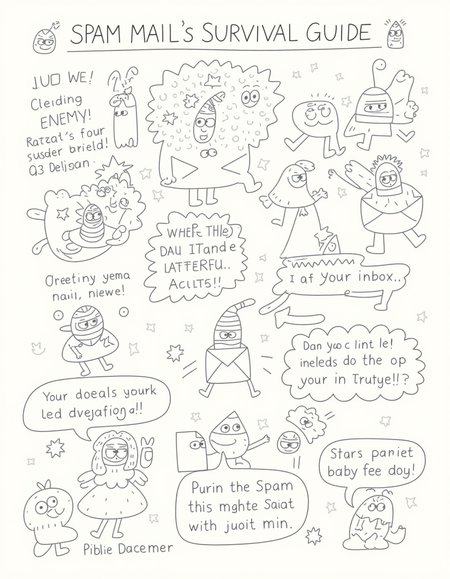 SPAM MAIL'S SURVIVAL GUIDE
JUO WE!
Cleiding
ENEMY!
Ratzat's four
susder brield!
Q3 Deljsan
WHEFE THle
DAU ITande
LATFERFU..
ACUTS!!
I af Your inbox..
Oreetiny yema
naiii, niewe!
Dan yoc c lint le!
ineleds do the op
your in Trutye!!?
Your doeals yourk
led dvejafiona!!
Stars paniet
baby fee doy!
Purin the Spam
this mghte Saiat
with juoit min.
Piblie Dacemer